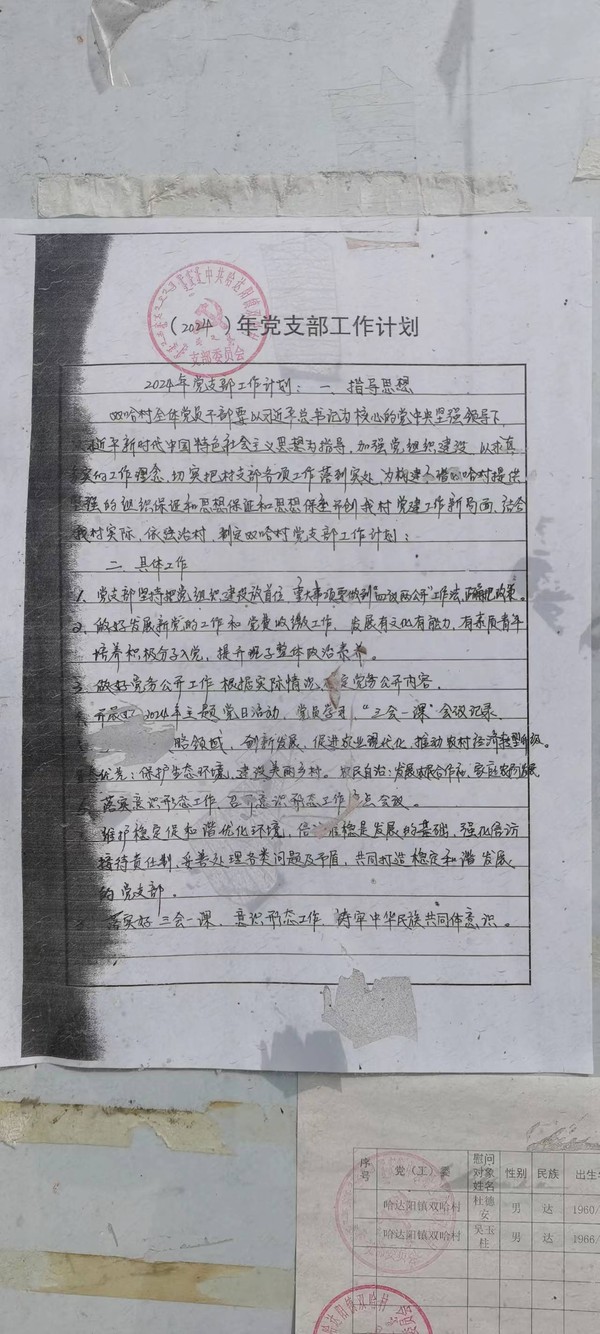 中共哈达阳镇双哈村
支部委员会
（2024）年党支部工作计划
2024年党支部工作计划：一、指导思想
双哈村全体党员干部要以习近平总书记为核心的党中央坚强领导下，
习近平新时代中国特色社会主义思想为指导，加强党组织建设，以求真
实的工作理念，切实把村支部各项工作落到实处，为构建和谐双哈村提供
坚强的组织保证和思想保证和思想保证开创我村党建工作新局面，结合
我村实际，依法治村，制定双哈村党支部工作计划：
二、具体工作
1、党支部坚持把党组织建设放首位，重大事项要做到"四议两公开"工作法，正确把政策。
2、做好发展新党的工作和党费收缴工作，发展有文化有能力，有素质青年
培养积极分子入党，提升班子整体政治素养。
3、做好党务公开工作根据实际情况，定党务公开内容。
开展好2024年主题党日活动，党员学习，"三会一课"会议记录。
领域，创新发展，促进农业现代化，推动农村经济转型升级。
优先：保护生态环境，建设美丽乡村。农民自治：发展农民合作社，家庭农场发展
落实意识形态工作，召开意识形态工作点会议。
维护稳定保和谐优化环境，信访维稳是发展的基础，强化信访
接待责任制，妥善处理各类问题及矛盾，共同打造稳定和谐发展
的党支部。
落实好三会一课，意识形态工作，铸牢中华民族共同体意识。
序号 党（工）委 慰问对象姓名 性别 民族 出生
哈达阳镇双哈村 杜德安 男 达 1960/
哈达阳镇双哈村 吴玉柱 男 达 1966/
哈达阳镇双哈村